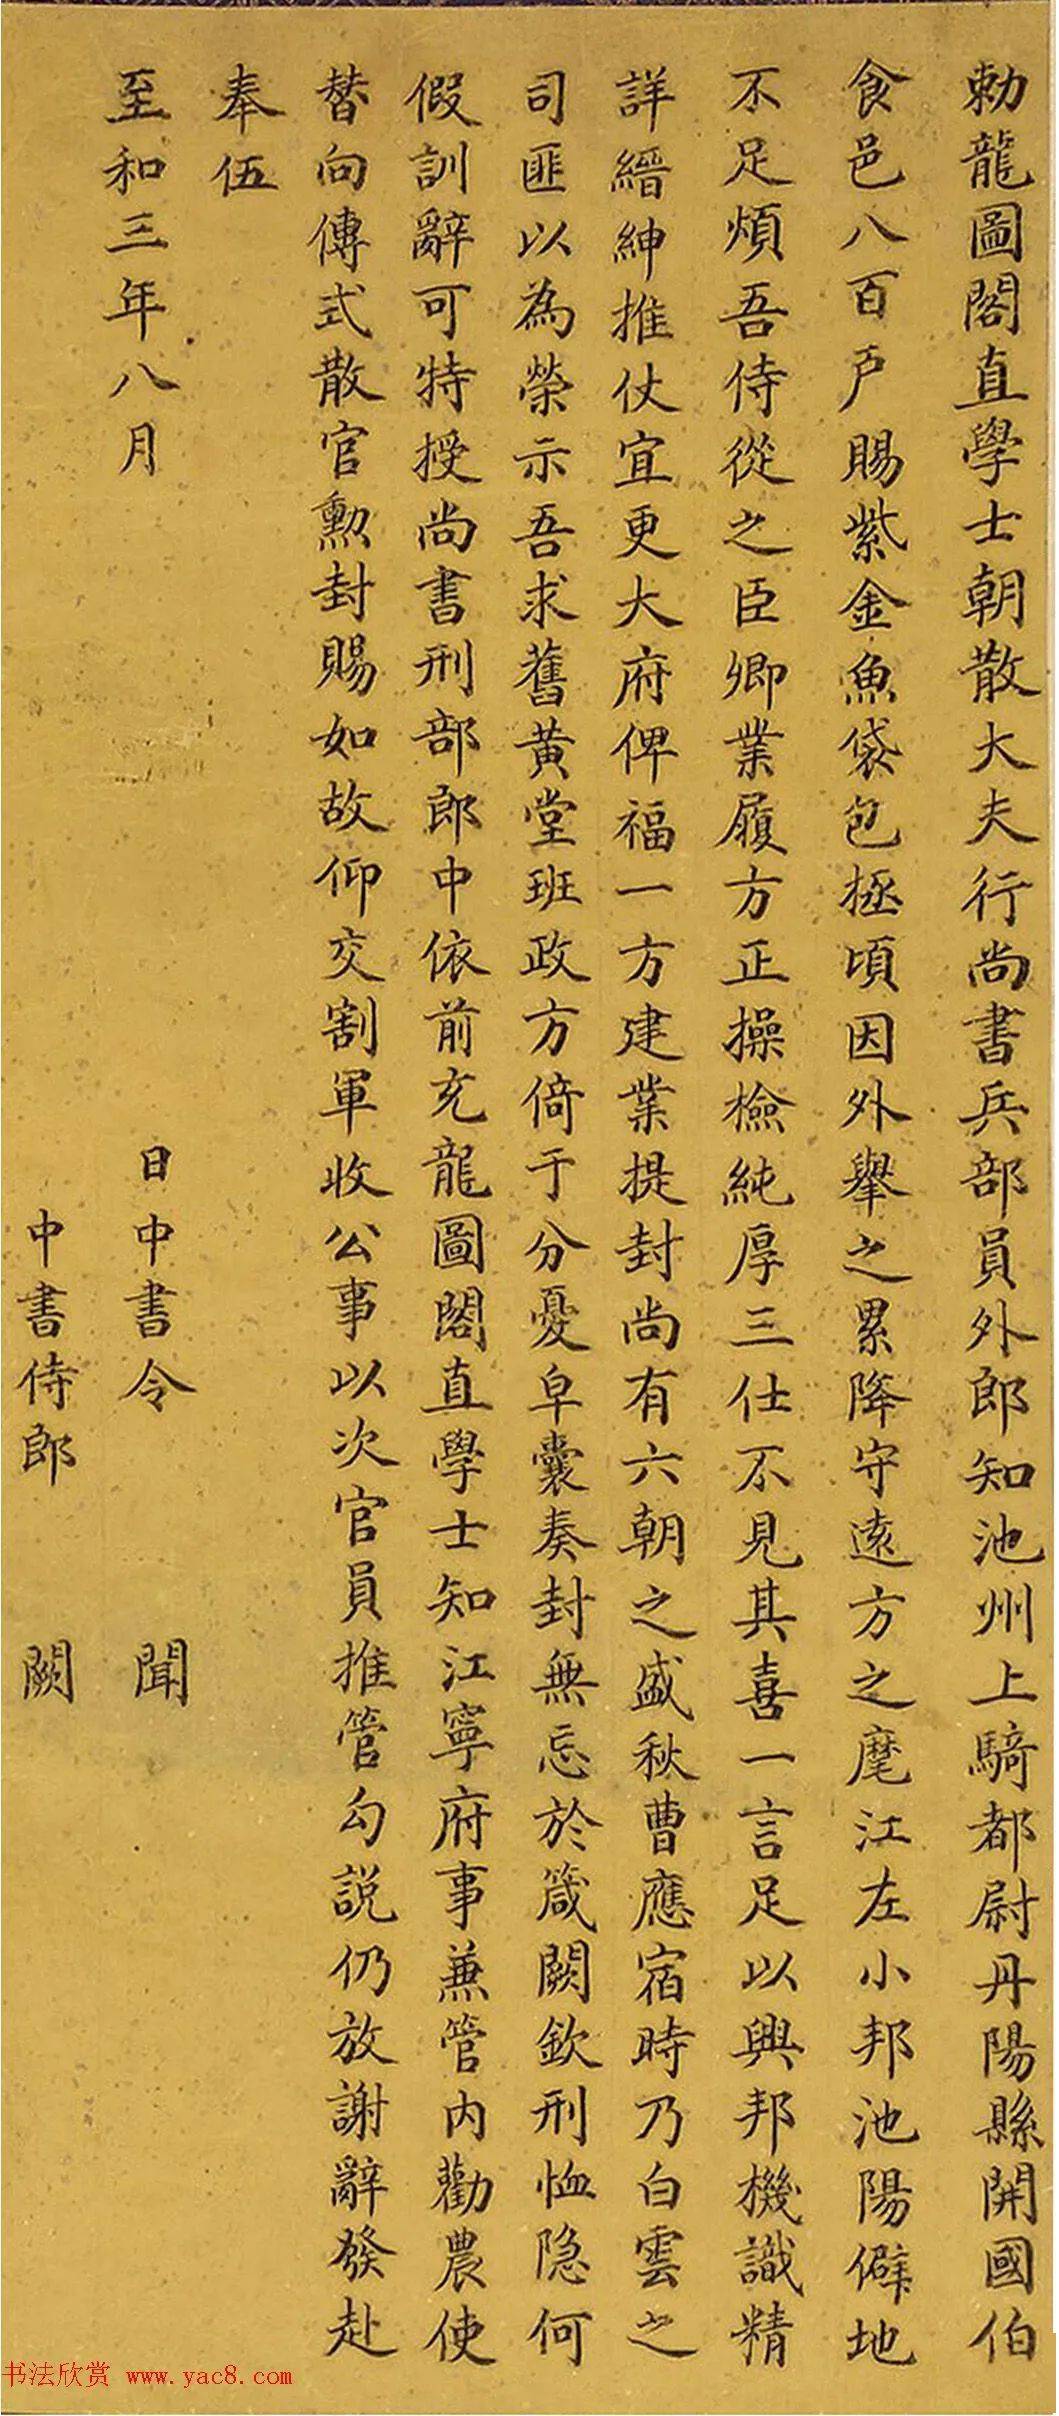 勅龍圖閣直學士朝散大夫行尚書兵部員外郎知池州上騎都尉丹陽縣開國伯
食邑八百戶賜紫金魚袋包拯頃因外舉之累降守遠方之麾江左小邦池陽僻地
不足煩吾侍從之臣卿業履方正操檢純厚三仕不見其喜一言足以興邦機識精
詳縉紳推仗宜更大府俾福一方建業提封尚有六朝之盛秋曹應宿時乃白雲之
司匪以為榮示吾求舊黃堂班政方倚于分憂皁囊奏封無忘於箴闕欽刑恤隐何
假訓辭可特授尚書刑部郎中依前充龍圖閣直學士知江寧府事兼管內勸農使
替向傳式散官勲封賜如故仰交割軍收公事以次官員推管勾說仍放謝辭發赴
奉伍
至和三年八月
日中書令 聞
中書侍郎 闕
书法欣赏 www.yac8.com